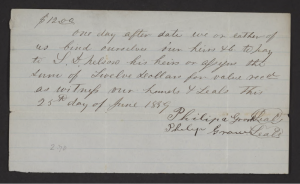 $12.00
one day after date we or either of
us bind ourselves our heirs &c to pay
to T. T. Nelson his heirs or assigns the
sum of Twelve dollars for value recd
as witness our hands & seals this
25th day of June 1889
Philip a Seal
Philip Seal